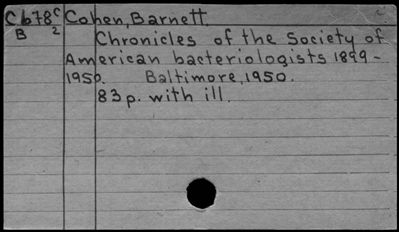 C678c Cohen, Barnett.
B 2
Chronicles of the Society of
American bacteriologists 1899-
1950. Baltimore, 1950.
83 p. with ill.